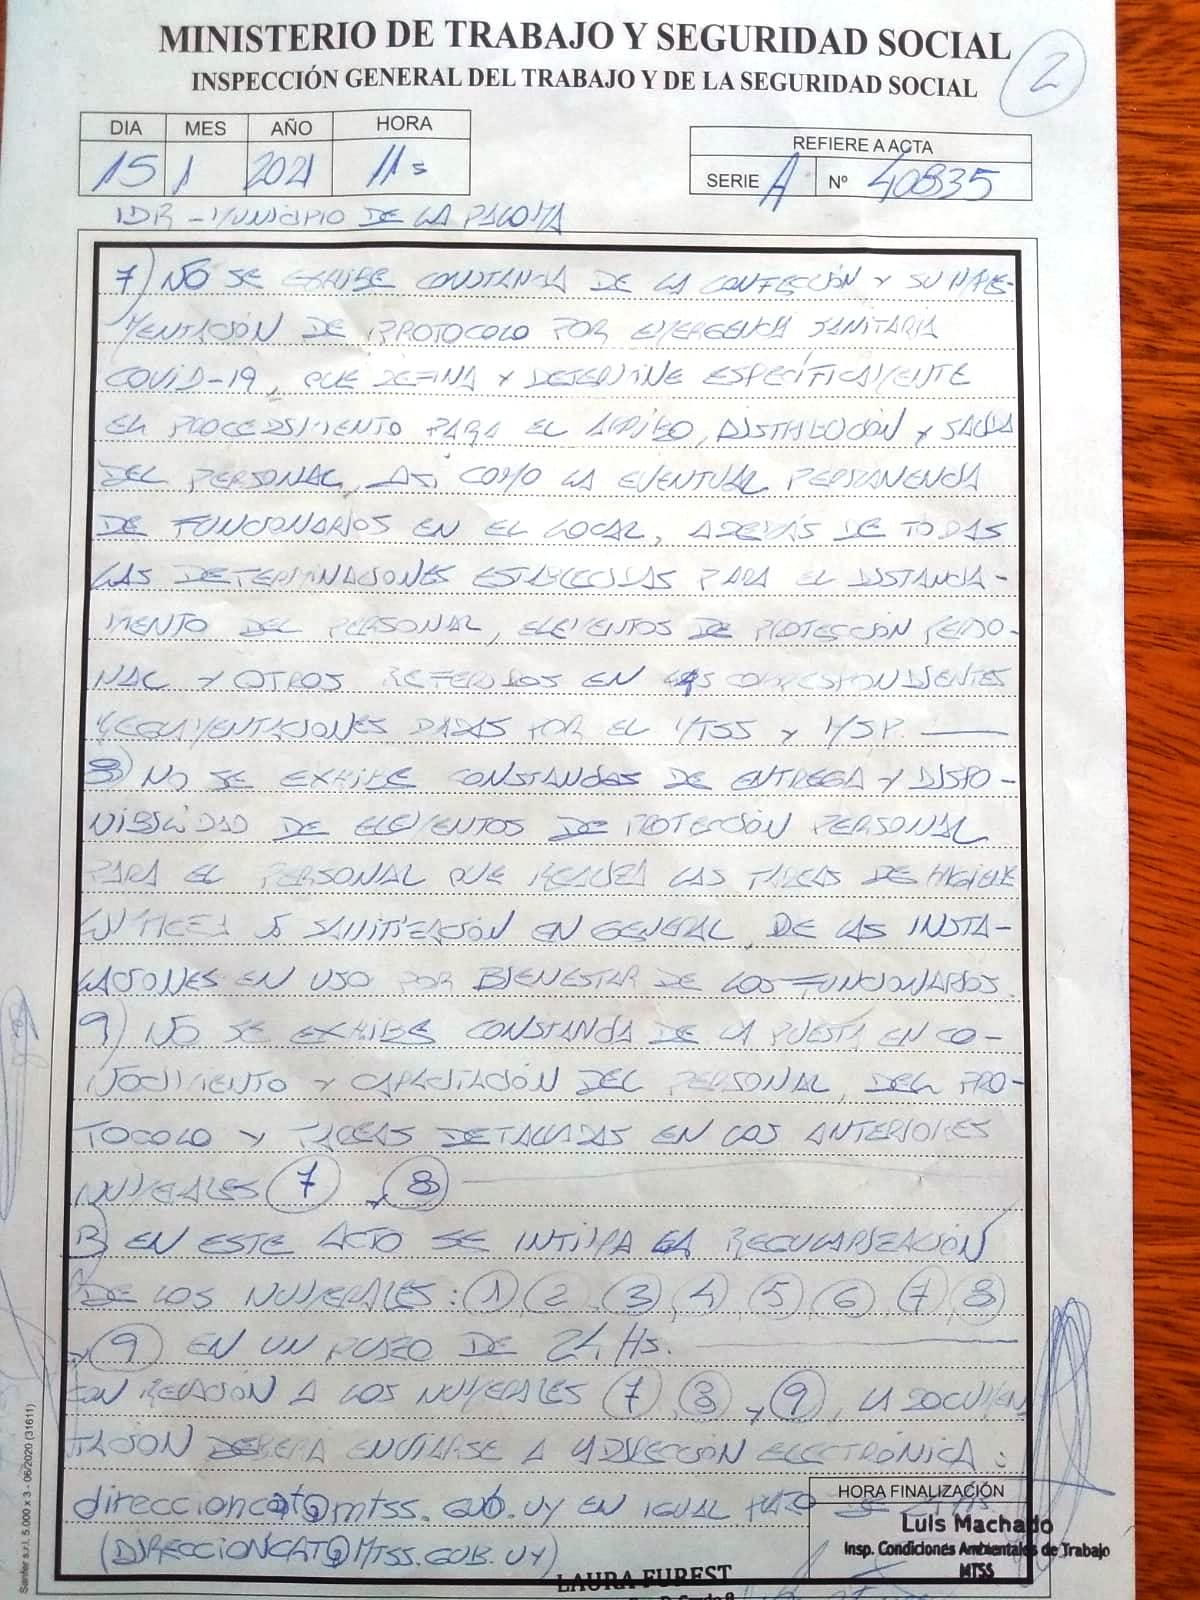 MINISTERIO DE TRABAJO Y SEGURIDAD SOCIAL
INSPECCIÓN GENERAL DEL TRABAJO Y DE LA SEGURIDAD SOCIAL
2
DIA MES AÑO HORA
15 1 2021 11 s
REFIERE A ACTA
SERIE A Nº 40835
IDR - MUNICIPIO DE LA PALOMA
7) NO SE EXHIBE CONSTANCIA DE LA CONFECCIÓN Y SU
MENTACIÓN DE PROTOCOLO POR EMERGENCIA SANITARIA
COVID-19, QUE DEFINA Y DETERMINE ESPECÍFICAMENTE
EL PROCEDIMIENTO PARA EL ARRIBO, DISTRIBUCIÓN Y SALIDA
DEL PERSONAL, ASÍ COMO LA EVENTUAL PERMANENCIA
DE FUNCIONARIOS EN EL LOCAL, ADEMÁS DE TODAS
LAS DETERMINACIONES ESTABLECIDAS PARA EL DISTANCIA-
MIENTO DEL PERSONAL, ELEMENTOS DE PROTECCIÓN PERSO-
NAL Y OTROS REFERIDOS EN LAS CORRESPONDIENTES
REGLAMENTACIONES DADAS POR EL MTSS Y MSP.
8) NO SE EXHIBE CONSTANCIAS DE ENTREGA Y DISPO-
NIBILIDAD DE ELEMENTOS DE PROTECCIÓN PERSONAL
PARA EL PERSONAL QUE REALIZA LAS TAREAS DE HIGIENE
LIMPIEZA Ó SANITIZACIÓN EN GENERAL, DE LAS INSTA-
LACIONES EN USO POR BIENESTAR DE LOS FUNCIONARIOS.
9) NO SE EXHIBE CONSTANCIA DE LA PUESTA EN CO-
NOCIMIENTO Y CAPACITACIÓN DEL PERSONAL, DEL PRO-
TOCOLO Y TAREAS DETALLADAS EN LOS ANTERIORES
NUMERALES 7 Y 8
B) EN ESTE ACTO SE INTIMA LA REGULARIZACIÓN
DE LOS NUMERALES: 1 2 3 4 5 6 7 8
Y 9 EN UN PLAZO DE 24 HS.
EN RELACIÓN A LOS NUMERALES 7 8 Y 9, LA DOCUMEN
TACIÓN DEBERÁ ENVIARSE A LA DIRECCIÓN ELECTRÓNICA:
direccioncat@mtss.gub.uy EN IGUAL PLAZO DE 24 HS.
(DIRECCIONCAT@MTSS.GUB.UY)
HORA FINALIZACIÓN
Luis Machado
Insp. Condiciones Ambientales de Trabajo
MTSS
LAURA FUREST
Sanfer s.r.l. 5.000 x 3 - 06/2020 (31611)